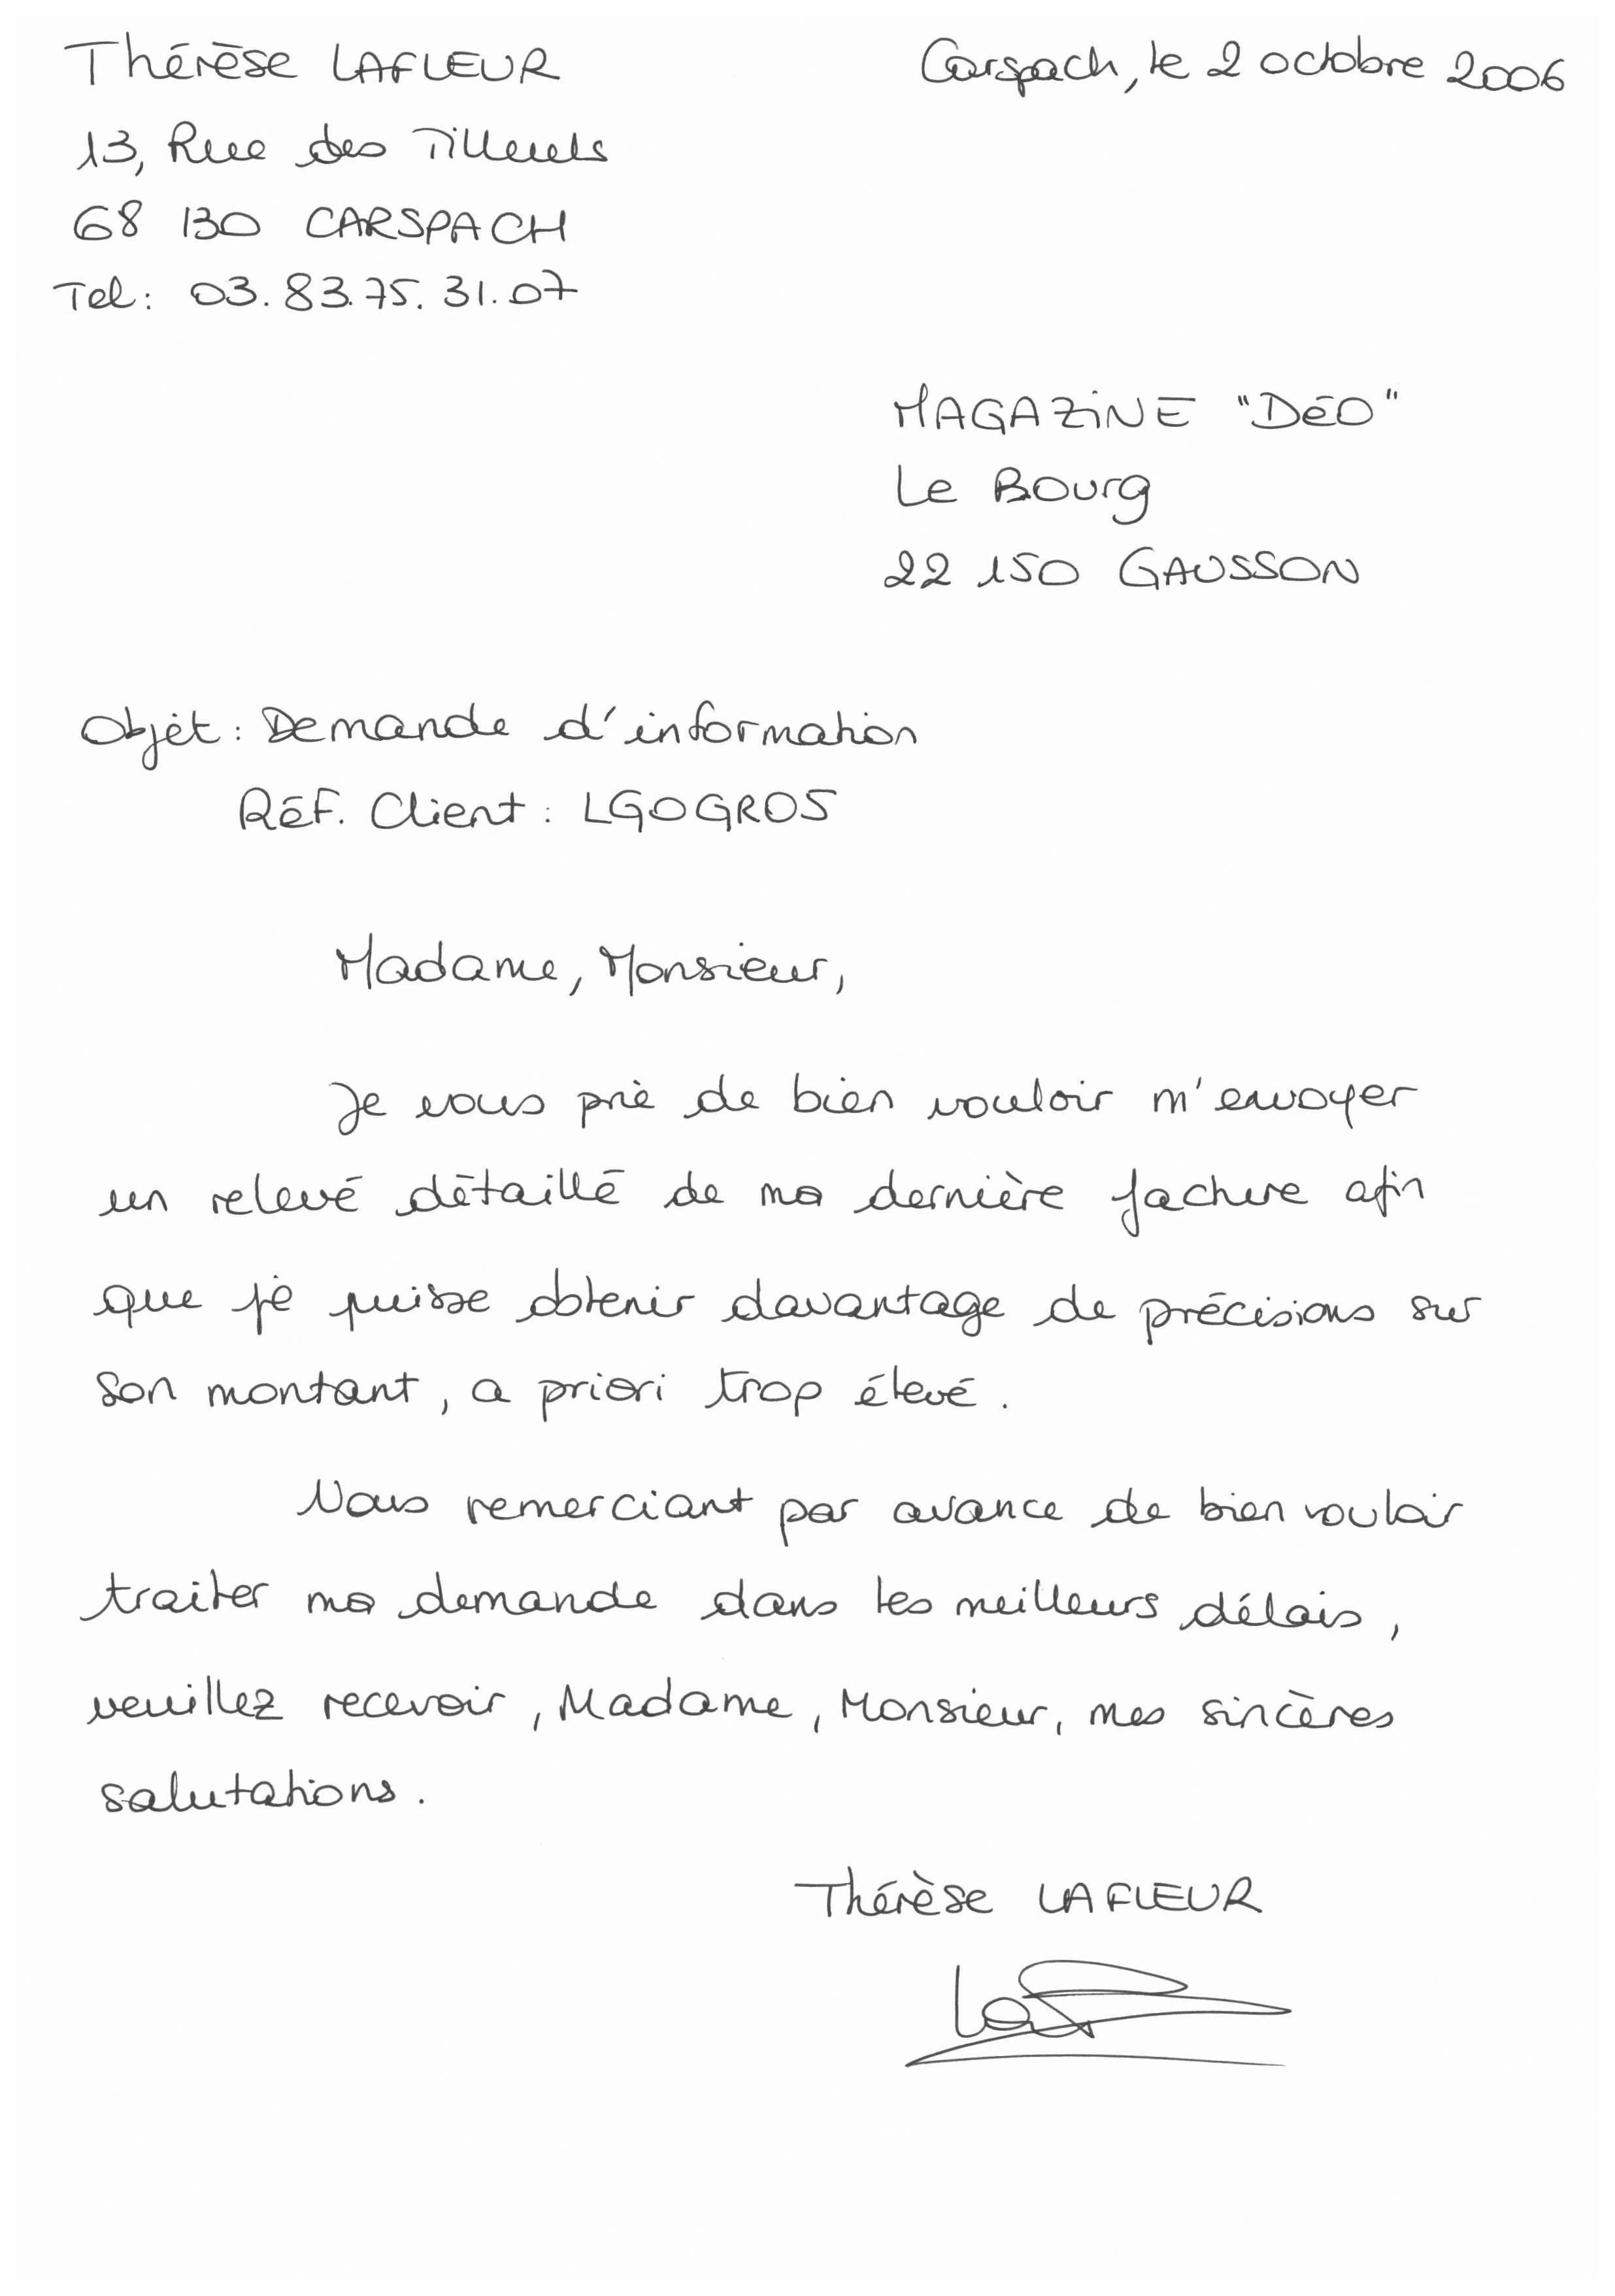 Thérèse LAFLEUR
Carspach, le 2 octobre 2006
13, Rue des Tilleuls
68 130 CARSPACH
Tel : 03.83.75.31.07
MAGAZINE "DéO"
Le Bourg
22 150 GAUSSON
Objet : Demande d'information
Réf. Client : LGOGROS
Madame, Monsieur,
Je vous prie de bien vouloir m'envoyer
un relevé détaillé de ma dernière facture afin
que je puisse obtenir davantage de précisions sur
son montant, a priori trop élevé.
Vous remerciant par avance de bien vouloir
traiter ma demande dans les meilleurs délais,
veuillez recevoir, Madame, Monsieur, mes sincères
salutations.
Thérèse LAFLEUR